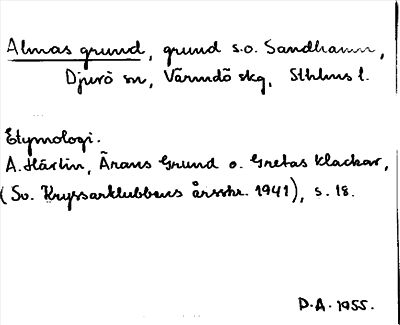 Almas grund, grund s.o. Sandhamn,
Djurö sn, Värmdö skg, Sthlms l.
Etymologi.
A. Härlin, Ärans Grund o. Gretas Klackar,
(Sv. Kryssarklubbens årsskr. 1941), s. 18.
D.A. 1955.